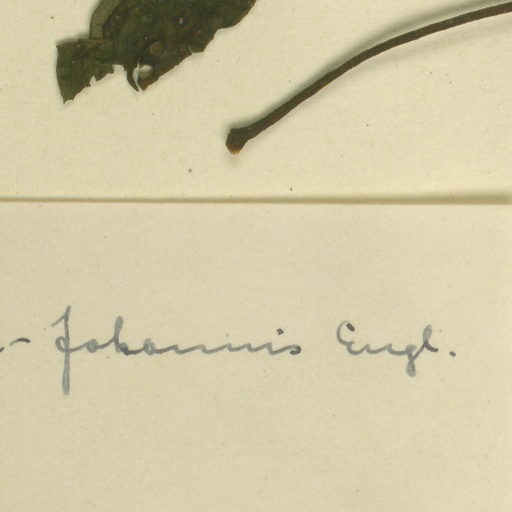 - Johannis Engl.